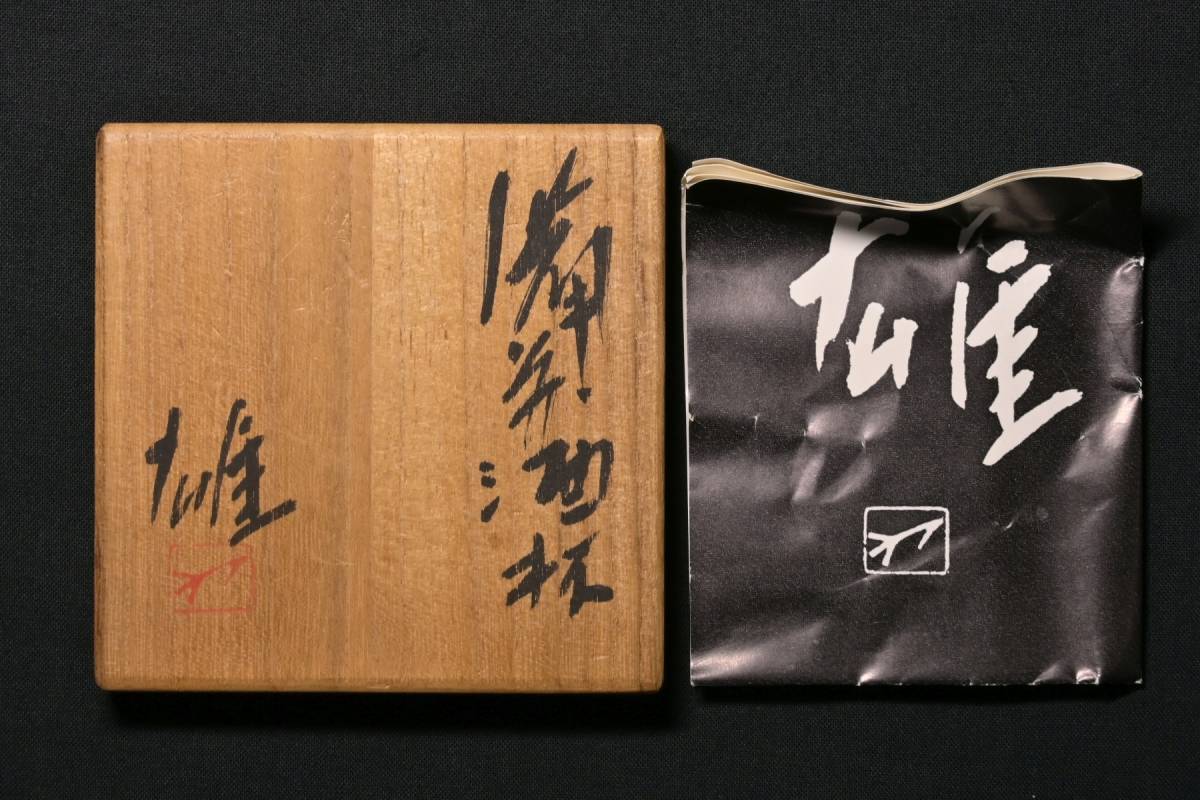 備前酒杯
雄
雄